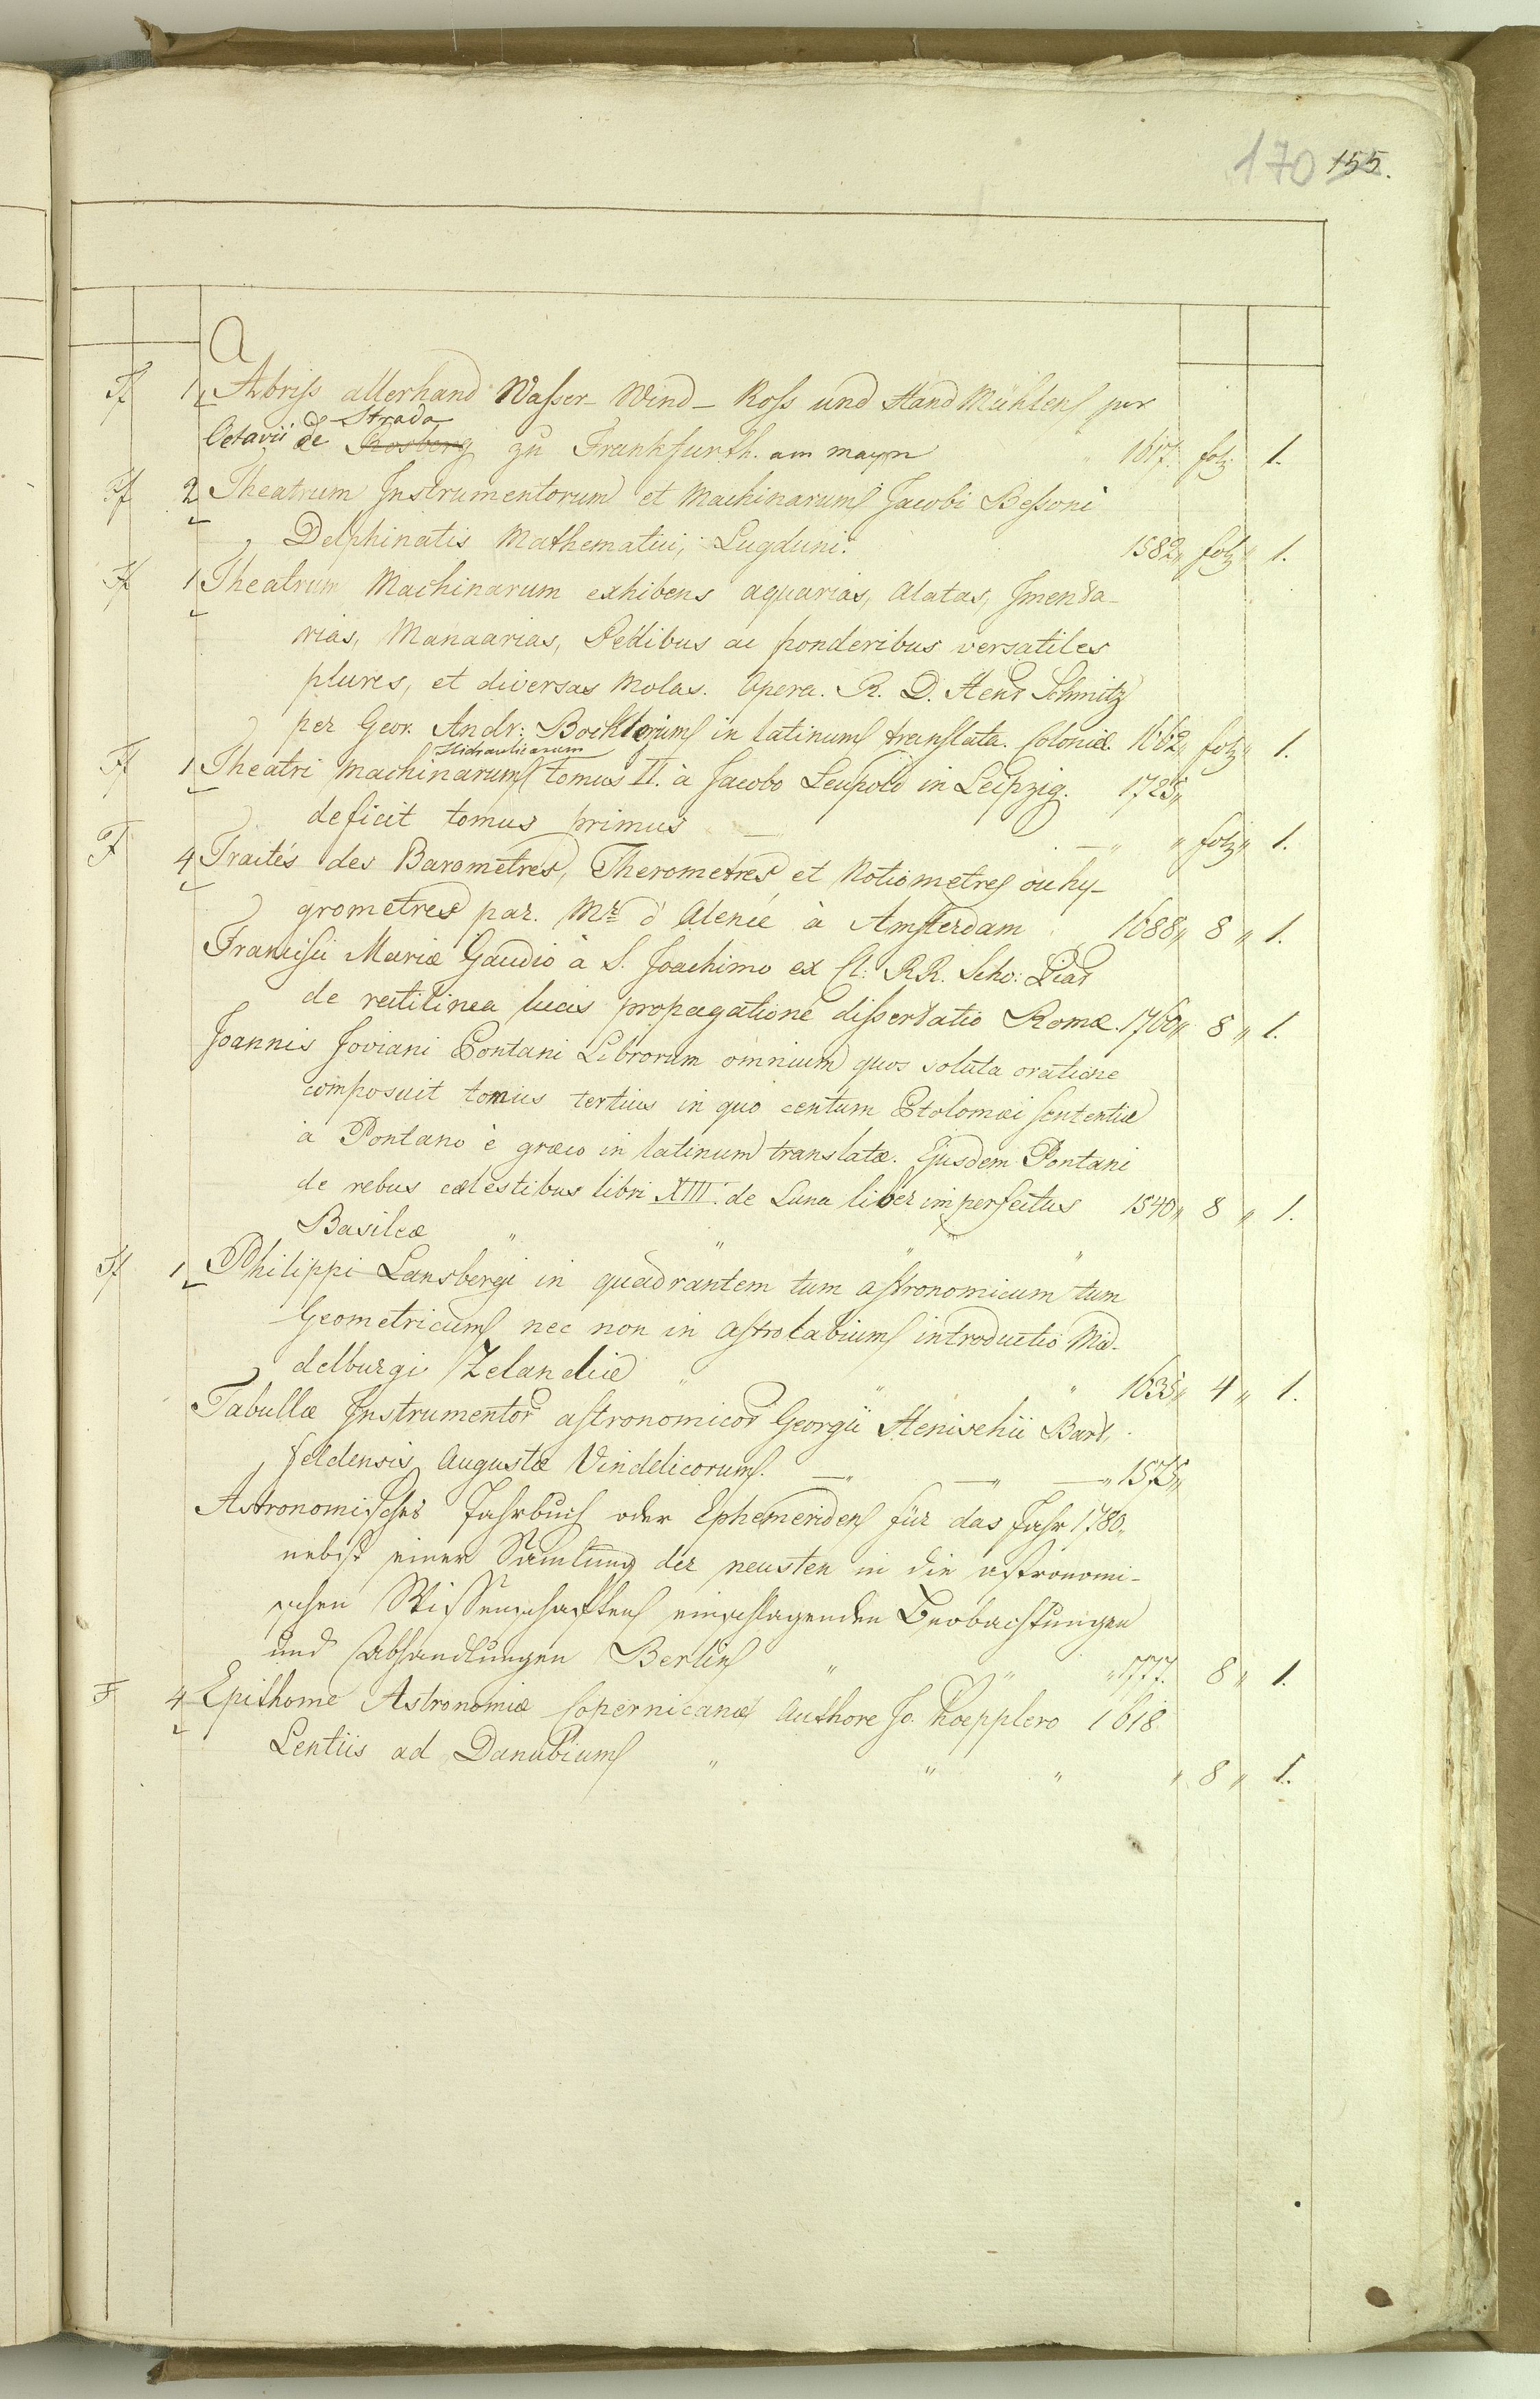 170 155.
a
Ff 1 Abriss allerhand Wasser- Wind- Ross und Hand Mühlen per
de Strada
Octavii de Rosberg zu Frankfurth. am mayn 1617. fol: 1.
Ff 2 Theatrum Instrumentorum et Machinarum Jacobi Bessoni
Delphinatis Mathematici, Lugduni. 1582 „ fol „ 1.
Ff 1 Theatrum Machinarum exhibens aquarias, alatas, Jmenta-
rias, Manuarias, Pedibus ac ponderibus versatiles
plures, et diversas Molas. Opera. R. D. Henr Schmitz
per Geor. Andr: Bocklerum in latinum translata. Coloniæ 1662 „ fol „ 1.
Hidraulicarum
Ff 1 Theatri machinarum tomus II. à Jacobo Leupold in Leipzig. 1725 „
deficit tomus primus — — „ „ fol „ 1.
F 4 Traités des Barometres, Therometres et Notiometres ou hy-
grometres par. Mr. d'Alencé à Amsterdam 1688 „ 8 „ 1.
Francisci Mariæ Gaudio à S. Joachimo ex Cl: RR. Scho: Piar
de rectilinea lucis propagatione dissertatio Romæ. 1760 „ 8 „ 1.
Joannis Joviani Pontani Librorum omnium quos soluta oratione
composuit tomus tertius in quo centum Ptolomæi sententiæ
à Pontano è græco in latinum translatæ. Ejusdem Pontani
de rebus cælestibus libri XIII. de Luna liber imperfectus 1540 „ 8 „ 1.
Basileæ „ „ „ „
Ff 1 Philippi Lansbergi in quadrantem tum astronomicum tum
Geometricum nec non in astrolabium introductio Mid-
delburgi Zelandiæ „ „ „ 1635 „ 4 „ 1.
Tabullæ Instrumentor astronomicor Georgii Henischii Bart,
feldensis Augustæ Vindelicorum. — „ — „ — „ 1575 „
Astronomisches Jahrbuch oder Ephemeriden für das Jahr 1780 „
nebst einer Samlung der neusten in die astronomi-
schen Wissenschaften einschlagenden Beobachtungen
und Abhandlungen Berlin „ „ „ 1777. 8 „ 1.
F 4 Epithome Astronomiæ Copernicanæ Authore Jo. Koepplero 1618
Lentiis ad Danubium „ „ „ „ 8 „ 1.